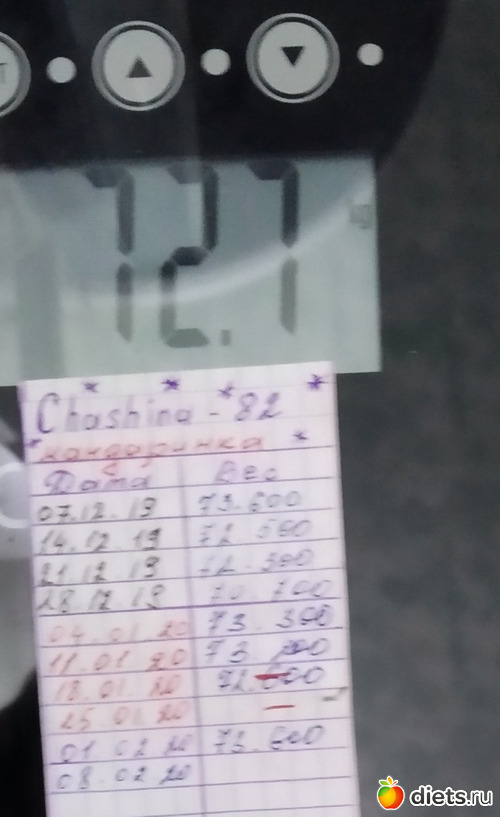 72.7
kg
Chashina - 82
мандаринка
Дата Вес
07.12.19 73.600
14.12.19 72.500
21.12.19 72.300
28.12.19 70.700
04.01.20 73.300
11.01.20 73.
18.01.20 72.600
25.01.20 —
01.02.20 73.600
08.02.20
diets.ru